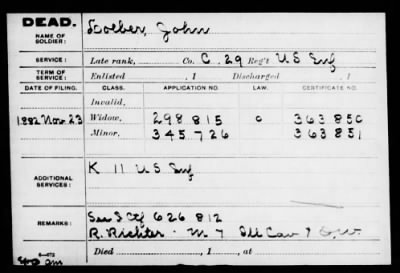 DEAD.
NAME OF SOLDIER: Dolber, John
SERVICE: Late rank, Co. C. 29 Reg't U S Inf
TERM OF SERVICE: Enlisted , 1 Discharged , 1
DATE OF FILING. CLASS. APPLICATION NO. LAW. CERTIFICATE NO.
Invalid,
1882 Nov. 23 Widow, 298 815 o 363 850
Minor, 345 726 363 851
ADDITIONAL SERVICES: K 11 U S Inf
REMARKS: See S Ctf 626 812
R. Richter - M 7 Ill Cav
Died , 1 , at